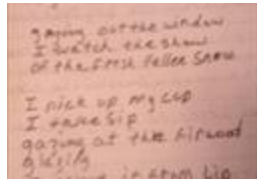 gazing out the window
I watch the show
of the fresh fallen snow
I pick up my cup
I take sip
gazing at the firwood
it from lip